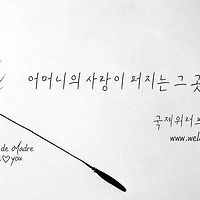 어머니의 사랑이 퍼지는 그 곳
국제위러브
www.wel
de Madre
you